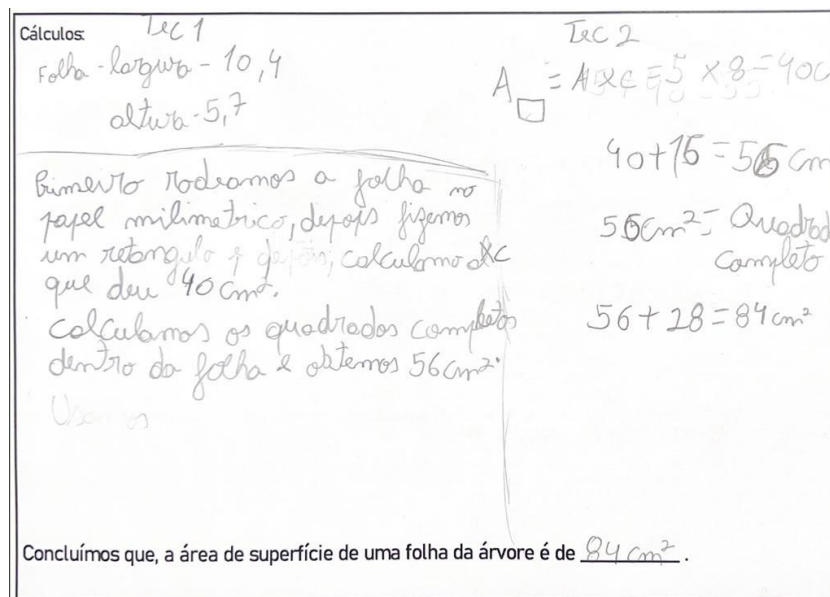 Cálculos:
Tec 1
Folha - largura - 10,4
altura - 5,7
Primeiro rodeamos a folha no
papel milimetrico, depois fizemos
um retangulo e depois, calculamo
que deu 40 cm².
Calculamos os quadrados completos
dentro da folha e obtemos 56 cm².
Usamos
Tec 2
A□ = = 5 × 8 = 40c
40 + 16 = 56 cm
56cm² = Quadrad
completo
56 + 28 = 84 cm²
Concluímos que, a área de superfície de uma folha da árvore é de 84 cm².